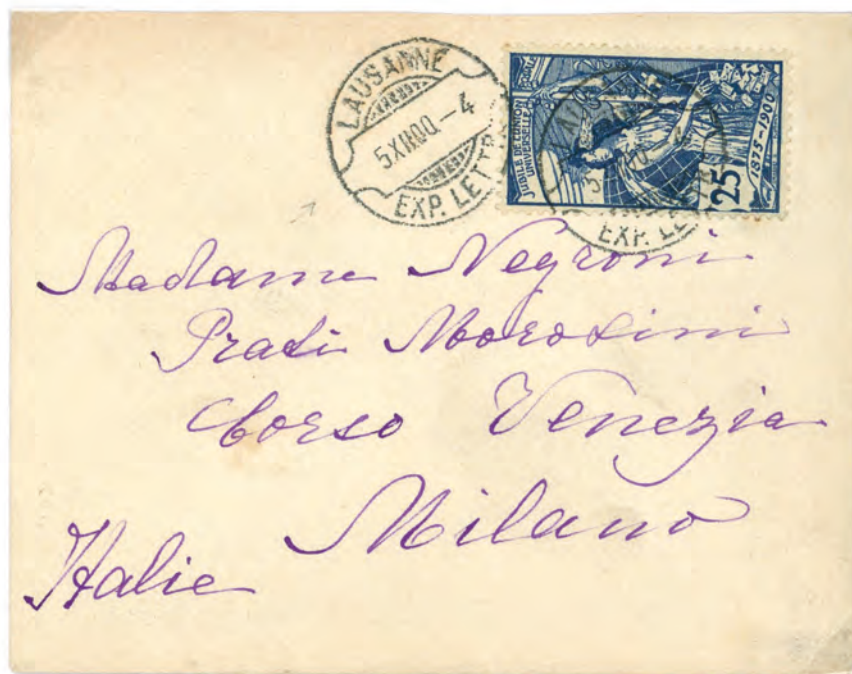 LAUSANNE
5 XII 00 - 4
EXP. LETTR
JUBILÉ DE L'UNION
UNIVERSELLE
1875-1900
25
EXP. LE
Madame Negroni
Prati Morosini
Corso Venezia
Milano
Italie